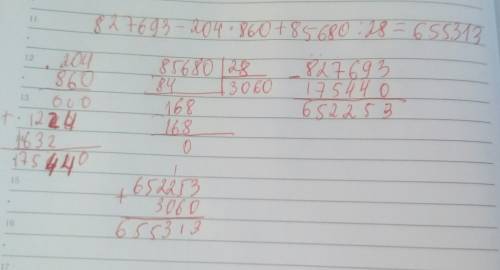 827693-204·860+85680:28=655313
·204
860
000
+1224
1632
175440
85680|28
84 3060
168
168
0
-827693
175440
652253
1
+652253
3060
655313